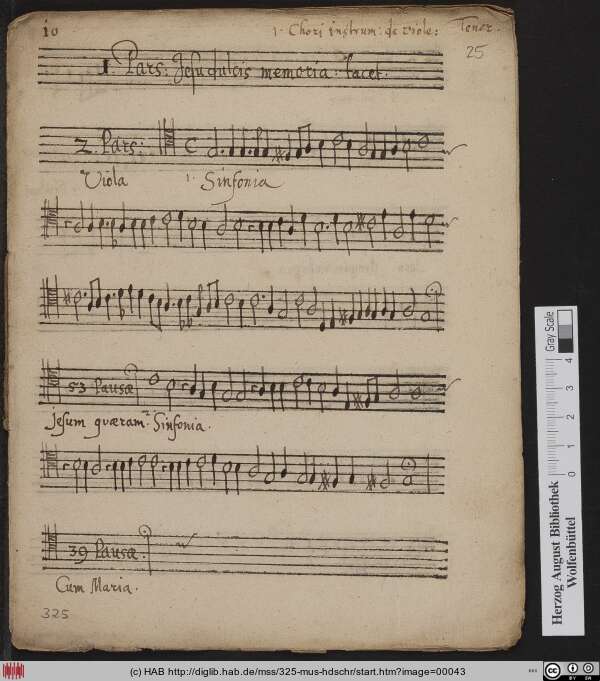 10 1. Chori instrum: de Viole: Tenor.
25
1. Pars: Jesu dulcis memoria. tacet.
2. Pars:
Viola 1. Sinfonia
53 Pausæ
Jesum quæram. Sinfonia.
39 Pausæ.
Cum Maria.
325
Gray Scale
0 1 2 3 4
Herzog August Bibliothek
Wolfenbüttel
(c) HAB http://diglib.hab.de/mss/325-mus-hdschr/start.htm?image=00043